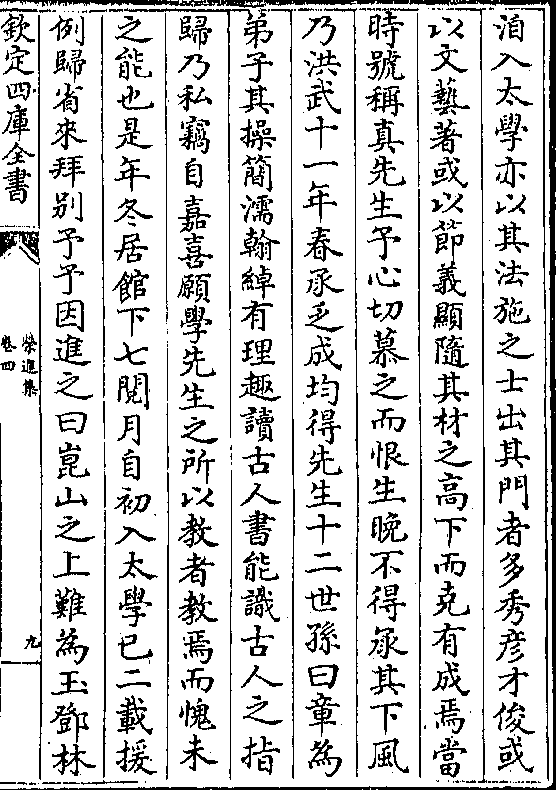 洎入太學亦以其法施之士出其門者多秀彦才俊或
以文藝著或以節義顯隨其材之高下而克有成焉當
時號稱真先生予心切慕之而恨生晚不得承其下風
乃洪武十一年春承乏成均得先生十二世孫曰章為
弟子其操簡濡翰綽有理趣讀古人書能識古人之指
歸乃私竊自嘉喜願學先生之所以教者教焉而愧未
之能也是年冬居館下七閱月自初入太學已二載援
例歸省來拜别予予因進之曰崑山之上難為玉鄧林
欽定四庫全書
榮進集
卷四
九